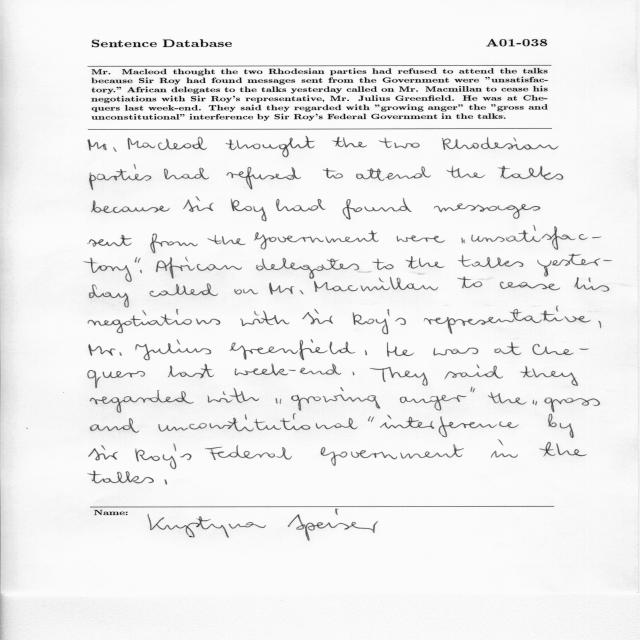 Sentence Database A01-038
Mr. Macleod thought the two Rhodesian parties had refused to attend the talks
because Sir Roy had found messages sent from the Government were "unsatisfac-
tory." African delegates to the talks yesterday called on Mr. Macmillan to cease his
negotiations with Sir Roy's representative, Mr. Julius Greenfield. He was at Che-
quers last week-end. They said they regarded with "growing anger" the "gross and
unconstitutional" interference by Sir Roy's Federal Government in the talks.
Mr. Macleod thought the two Rhodesian
parties had refused to attend the talks
because Sir Roy had found messages
sent from the Government were „unsatisfac-
tory". African delegates to the talks yester-
day called on Mr. Macmillan to cease his
negotiations with Sir Roy's representative,
Mr. Julius Greenfield. He was at Che-
quers last week-end. They said they
regarded with „growing anger" the „gross
and unconstitutional" interference by
Sir Roy's Federal Government in the
talks.
Name: Krystyna Speiser